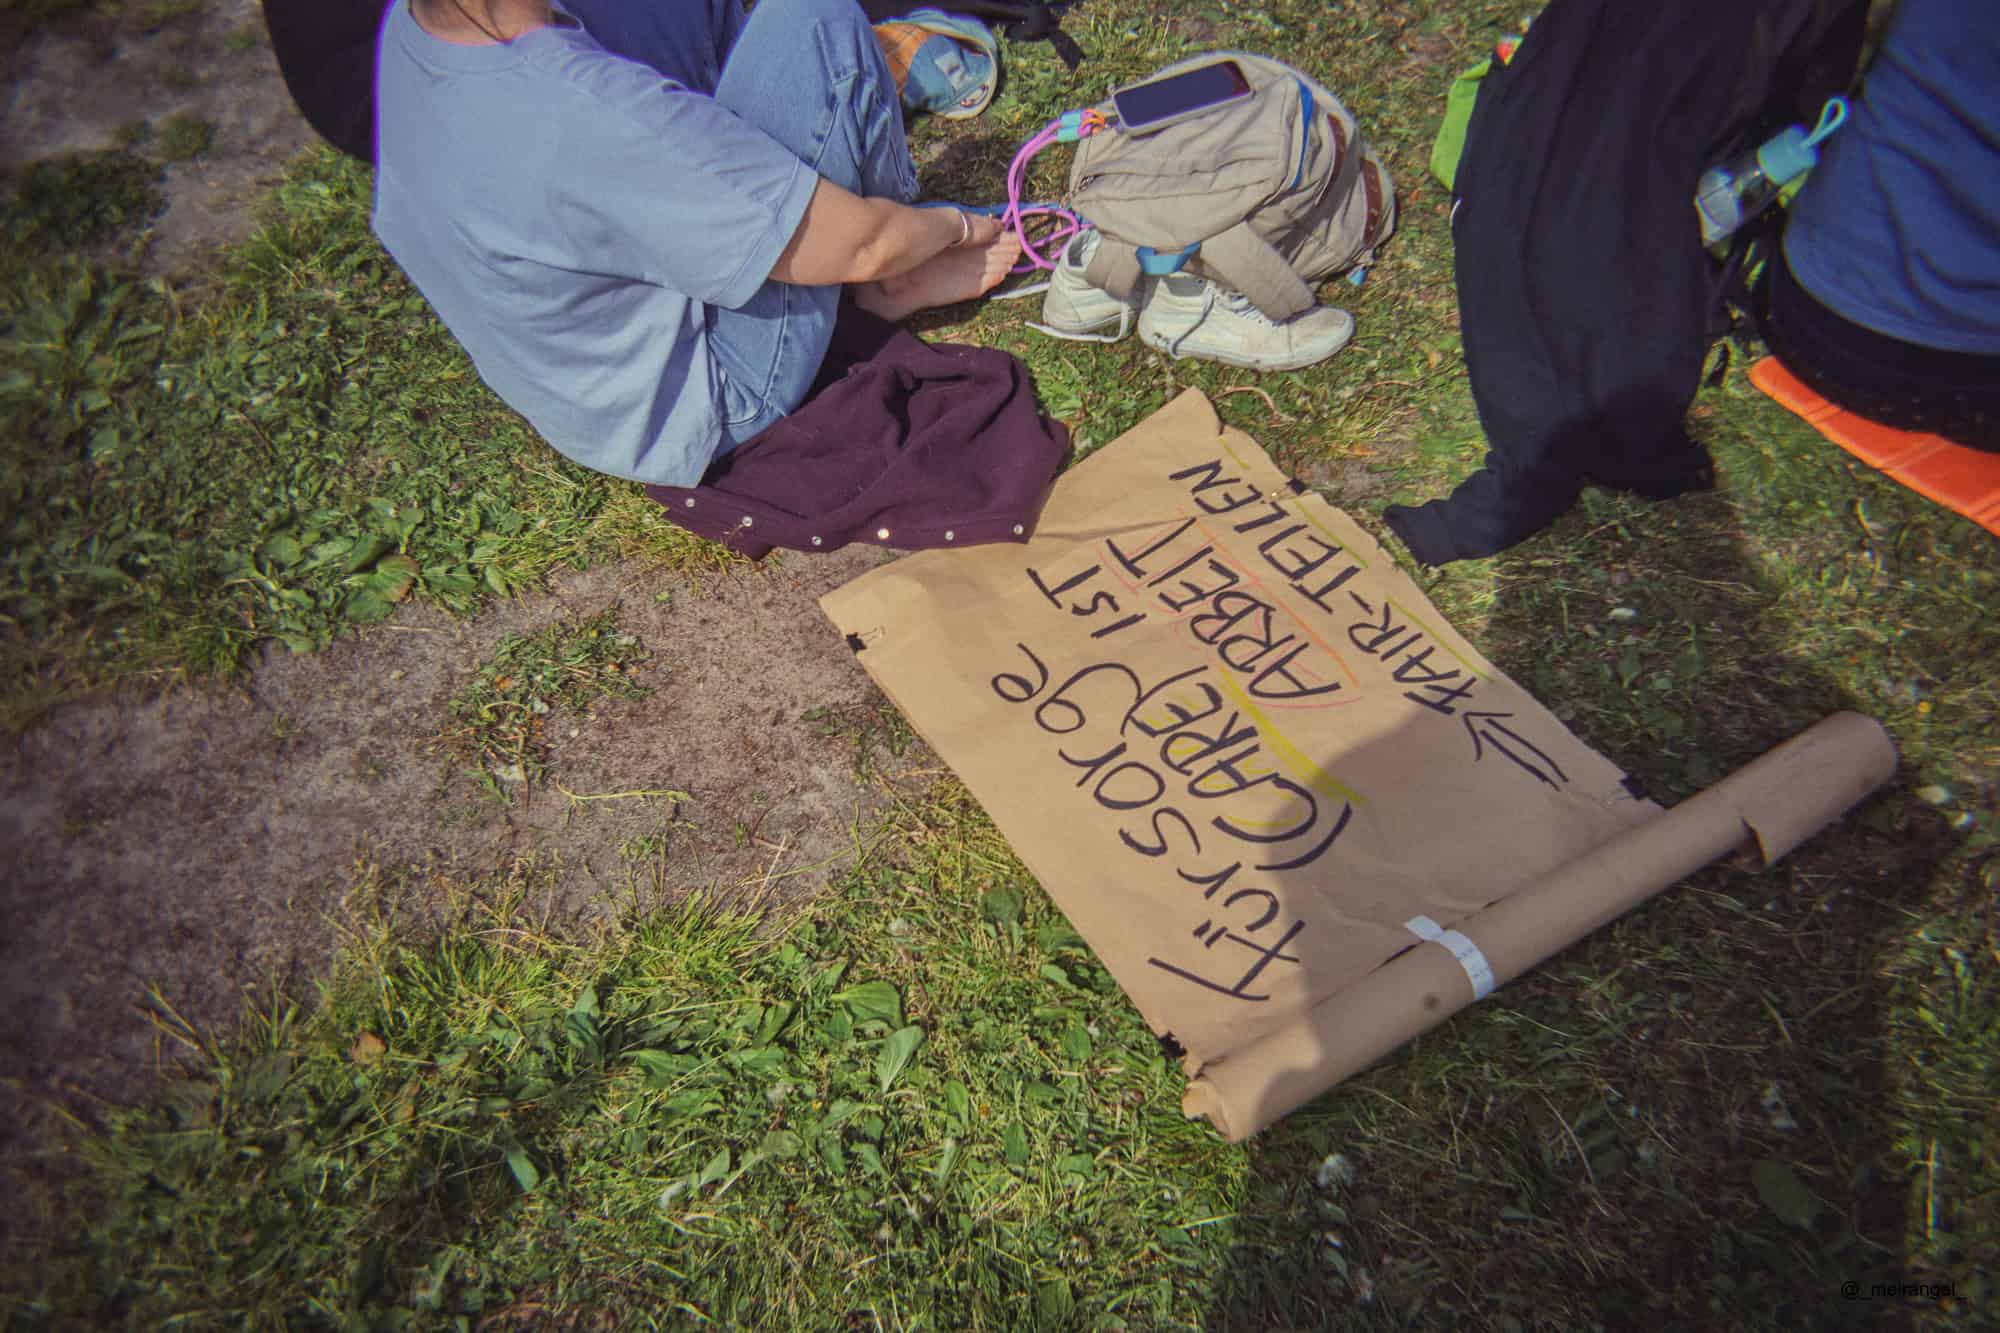 Fürsorge
(CARE) IST
ARBEIT
⇒ FAIR-TEILEN
@_melrangel_